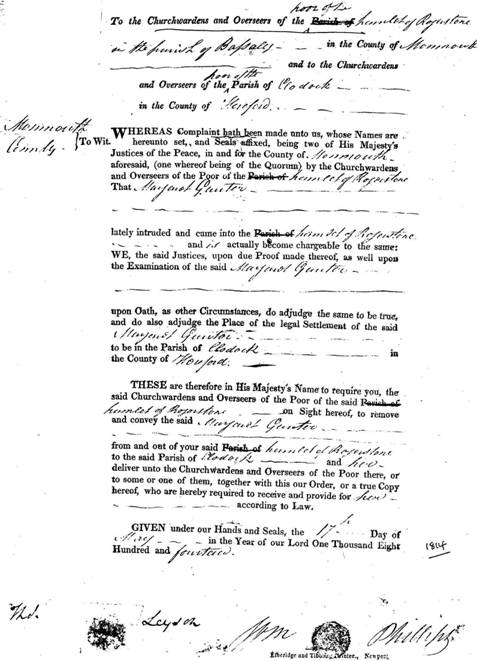 poor of the
To the Churchwardens and Overseers of the Parish of hamlet of Rogerstone
in the parish of Bassaleg in the County of Monmouth
and to the Churchwardens
poor of the
and Overseers of the Parish of Clodock
in the County of Hereford.
Monmouth
County
To Wit.
WHEREAS Complaint hath been made unto us, whose Names are
hereunto set, and Seals affixed, being two of His Majesty's
Justices of the Peace, in and for the County of Monmouth
aforesaid, (one whereof being of the Quorum) by the Churchwardens
and Overseers of the Poor of the Parish of hamlet of Rogerstone
That Margaret Gunter
lately intruded and came into the Parish of hamlet of Rogerstone
and is actually become chargeable to the same:
WE, the said Justices, upon due Proof made thereof, as well upon
the Examination of the said Margaret Gunter
upon Oath, as other Circumstances, do adjudge the same to be true,
and do also adjudge the Place of the legal Settlement of the said
Margaret Gunter
to be in the Parish of Clodock in
the County of Hereford.
THESE are therefore in His Majesty's Name to require you, the
said Churchwardens and Overseers of the Poor of the said Parish of
hamlet of Rogerstone on Sight hereof, to remove
and convey the said Margaret Gunter
from and out of your said Parish of hamlet of Rogerstone
to the said Parish of Clodock and her
deliver unto the Churchwardens and Overseers of the Poor there, or
to some or one of them, together with this our Order, or a true Copy
hereof, who are hereby required to receive and provide for her
according to Law.
GIVEN under our Hands and Seals, the 17th Day of
May in the Year of our Lord One Thousand Eight
Hundred and fourteen.
1814
Thos. Leyson Wm Phillips
Etheridge and Printer, Newport